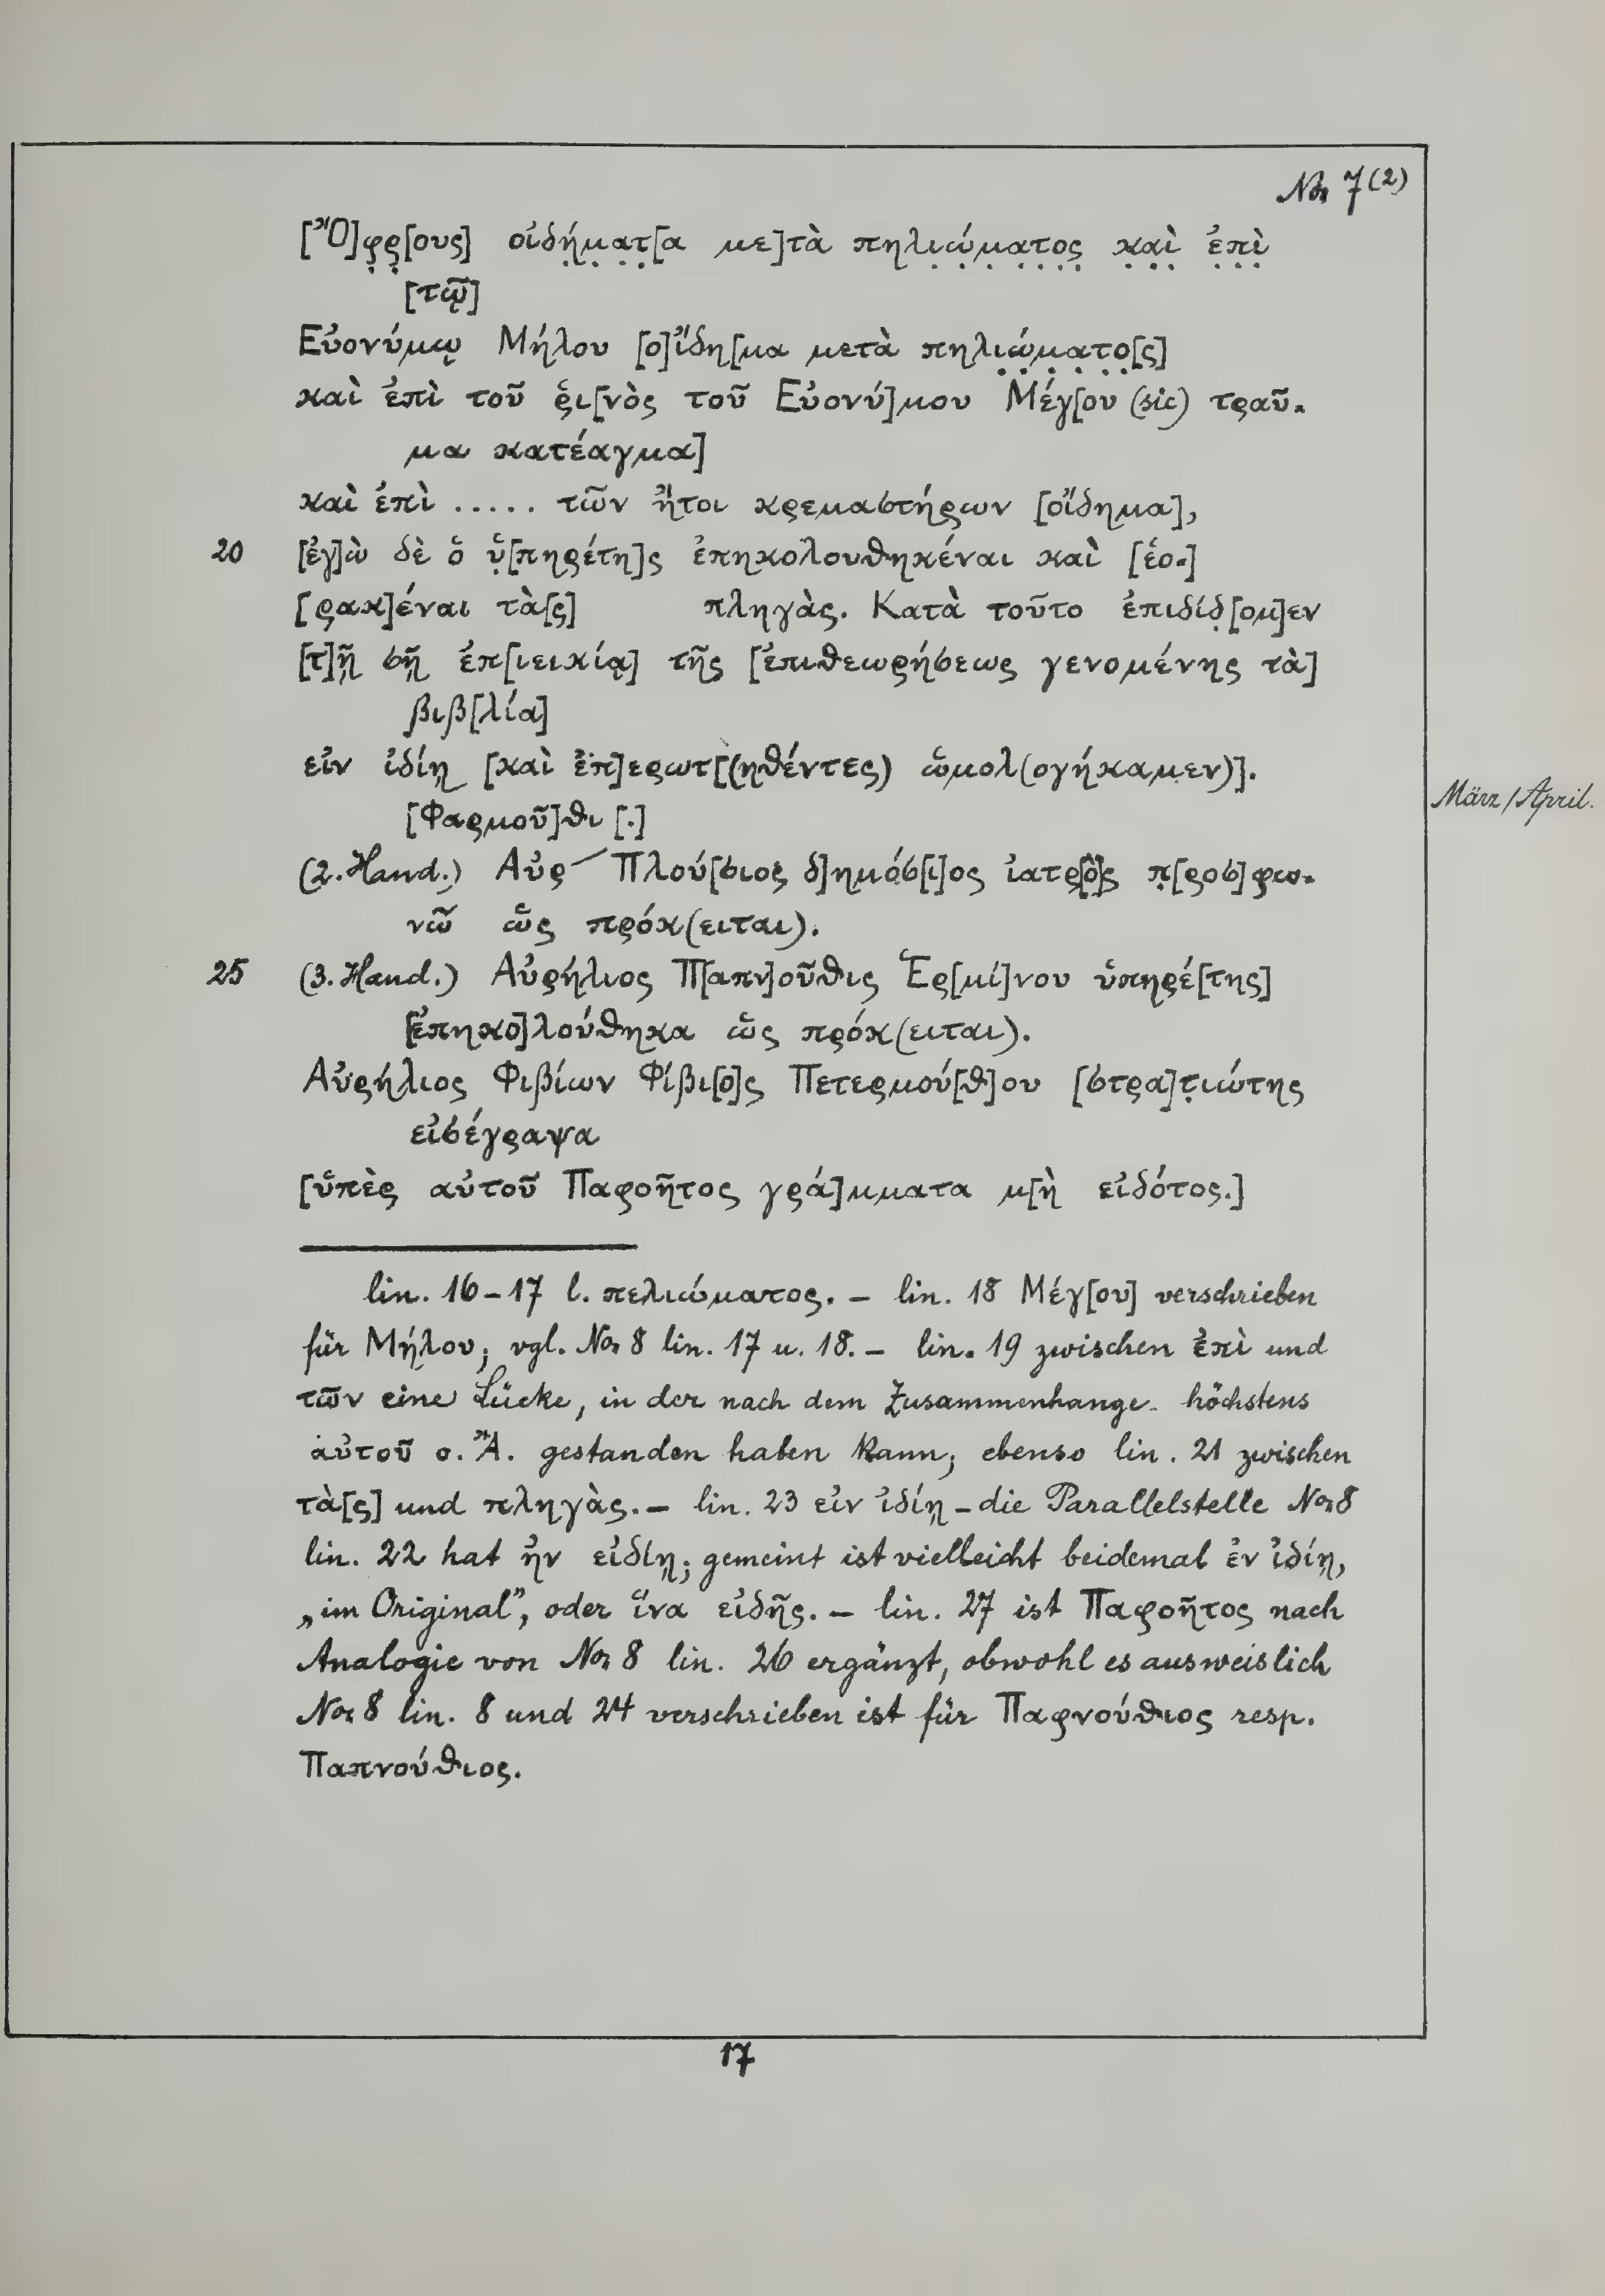 No. 7(2)
[Ὄ]φ̣ρ̣[ους] οἰδή̣μ̣ατ̣[α με]τὰ πηλι̣ώ̣μ̣α̣τ̣ο̣ς̣ κ̣α̣ὶ̣ ἐ̣π̣ὶ̣
[τῷ]
Εὐονύμῳ Μήλου [ο]ἴδη[μα μετὰ πηλι̣ώ̣μ̣α̣τ̣ο̣[ς]
καὶ ἐπὶ τοῦ ῥι[νὸς τοῦ Εὐονύ]μου Μέγ[ου (sic) τραῦ-
μα κατέαγμα]
καὶ ἐπὶ ..... τῶν ἤτοι κρεμαστήρων [οἴδημα],
20 [ἐγ]ὼ δὲ ὁ ὑ̣[πηρέτη]ς ἐπηκολουθηκέναι καὶ [ἑο-]
[ρακ]έναι τὰ[ς] πληγὰς. Κατὰ τοῦτο ἐπιδίδ̣[ομ]εν
[τ]ῇ σῇ ἐπ[ιεικίᾳ] τῆς [ἐπιθεωρήσεως γενομένης τὰ]
βιβ[λία]
εἰν ἰδίῃ [καὶ ἐπ]ερωτ[(ηθέντες) ὡμολ(ογήκαμεν)].
[Φαρμοῦ]θι [.]
März/April.
(2. Hand.) Αὐρ Πλού[σιος δ]ημόσ̣[ι]ος ἰατρ[ὸ]ς π̣[ροσ]φω-
νῶ ὡς πρόκ(ειται).
25 (3. Hand.) Αὐρήλιος Π[απν]οῦθις Ἑρ[μί]νου ὑπηρέ[της]
[ἐπηκο]λούθηκα ὡς πρόκ(ειται).
Αὐρήλιος Φιβίων Φίβι[ο]ς Πετερμού[θ]ου [στρα]τ̣ιώτης
εἰσέγραψα
[ὑπὲρ αὐτοῦ Παφοῆτος γρά]μματα μ[ὴ εἰδότος.]
lin. 16–17 l. πελιώματος. – lin. 18 Μέγ[ου] verschrieben
für Μήλου; vgl. No. 8 lin. 17 u. 18. – lin. 19 zwischen ἐπὶ und
τῶν eine Lücke, in der nach dem Zusammenhange höchstens
αὐτοῦ o. Ä. gestanden haben kann; ebenso lin. 21 zwischen
τὰ[ς] und πληγὰς. – lin. 23 εἰν ἰδίῃ – die Parallelstelle No. 8
lin. 22 hat ἠν εἰδίῃ; gemeint ist vielleicht beidemal ἐν ἰδίῃ,
„im Original”, oder ἵνα εἰδῇς. – lin. 27 ist Παφοῆτος nach
Analogie von No. 8 lin. 26 ergänzt, obwohl es ausweislich
No. 8 lin. 8 und 24 verschrieben ist für Παφνούθιος resp.
Παπνούθιος.
17